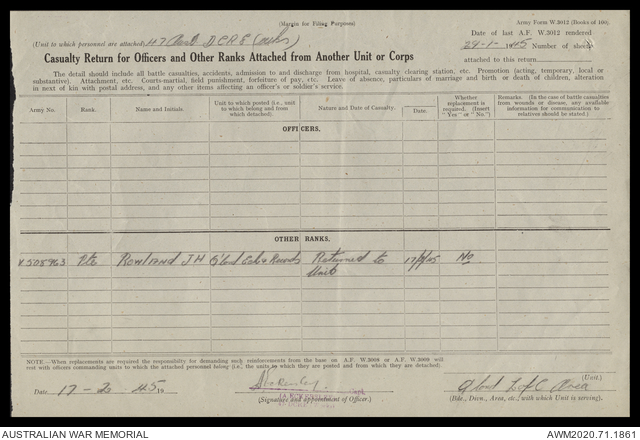 (Margin for Filing Purposes)
Army Form W.3012 (Books of 100)
(Unit to which personnel are attached) 47 DCRE (Wks)
Date of last A.F. W.3012 rendered
29-1-45 Number of sheets
attached to this return
Casualty Return for Officers and Other Ranks Attached from Another Unit or Corps
The detail should include all battle casualties, accidents, admission to and discharge from hospital, casualty clearing station, etc. Promotion (acting, temporary, local or
substantive). Attachment, etc. Courts-martial, field punishment, forfeiture of pay, etc. Leave of absence, particulars of marriage and birth or death of children, alteration
in next of kin with postal address, and any other items affecting an officer's or soldier's service.
Army No. Rank. Name and Initials. Unit to which posted (i.e., unit to which belong and from which detached). Nature and Date of Casualty. Date. Whether replacement is required. (Insert "Yes" or "No.") Remarks. (In the case of battle casualties from wounds or disease, any available information for communication to relatives should be stated.)
OFFICERS.
OTHER RANKS.
V508963 Pte Rowland JH Q'land Ech & Records Returned to 17/2/45 No
Unit
NOTE.—When replacements are required the responsibility for demanding such reinforcements from the base on A.F. W.3008 or A.F. W.3009 will
rest with officers commanding units to which the attached personnel belong (i.e., the units to which they are posted and from which they are detached).
Date 17-2-45 19
(Signature and appointment of Officer.)
Q'land L of C Area (Unit.)
(Bde., Divn., Area, etc., with which Unit is serving).
AUSTRALIAN WAR MEMORIAL
AWM2020.71.1861